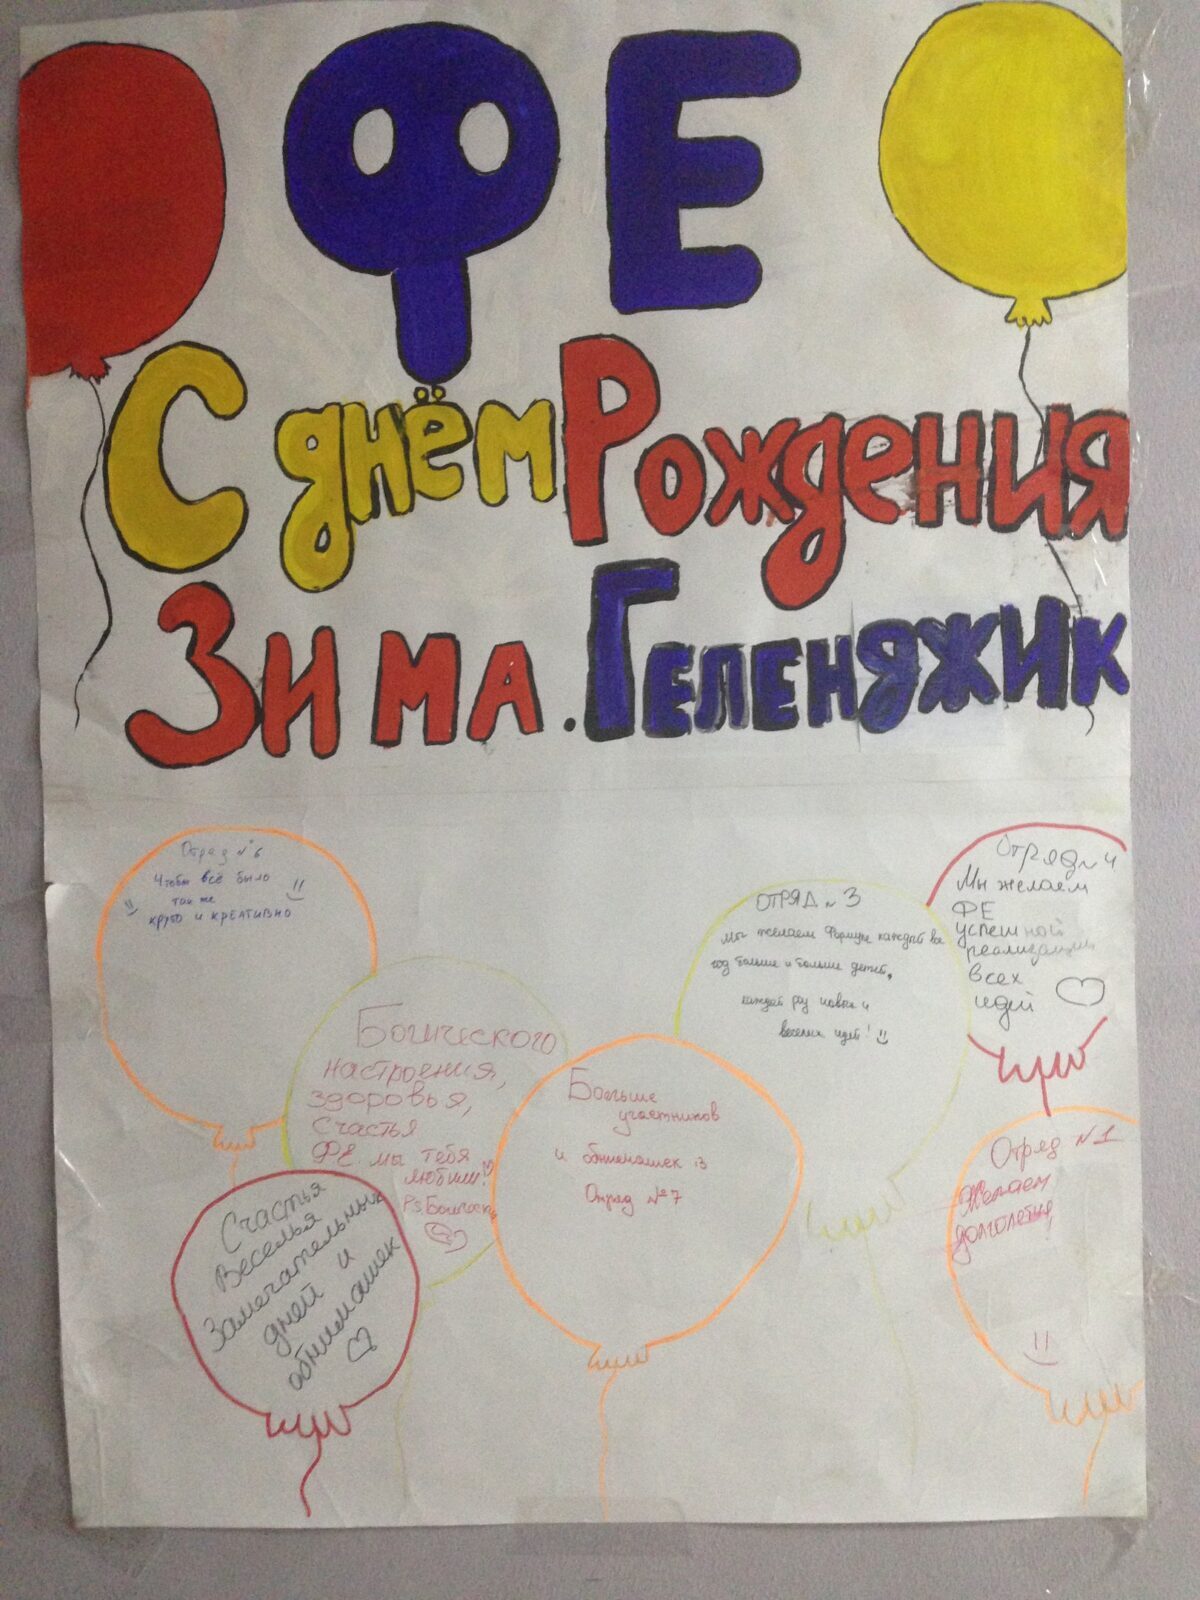 ФЕ
С днём Рождения
Зима. Геленджик
Отряд №6
Чтобы всё было
так же
круто и креативно
ОТРЯД №3
Мы желаем Формуле каждый
год больше и больше детей,
каждый раз новых и
веселых идей!
Отряд №4
Мы желаем
ФЕ
успешной
реализации
всех
идей
Божического
настроения,
здоровья,
счастья
ФЕ мы тебя
любим!
P.s.
Больше
участников
и обнимашек :3
Отряд №7
Отряд №1
Желаем
долголетия
Счастья
Веселья
Замечательных
дней и
обнимашек